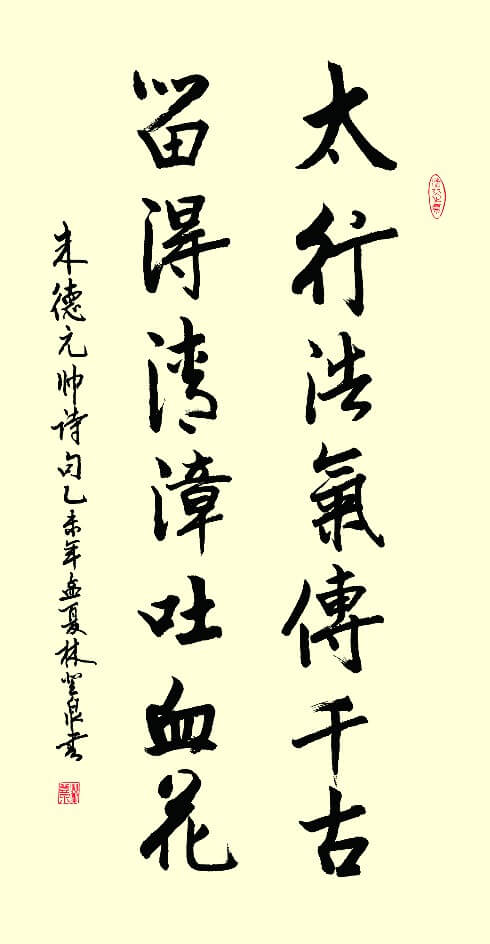 太行浩氣傳千古
留得清漳吐血花
朱德元帅诗句乙未年孟夏林登泉书